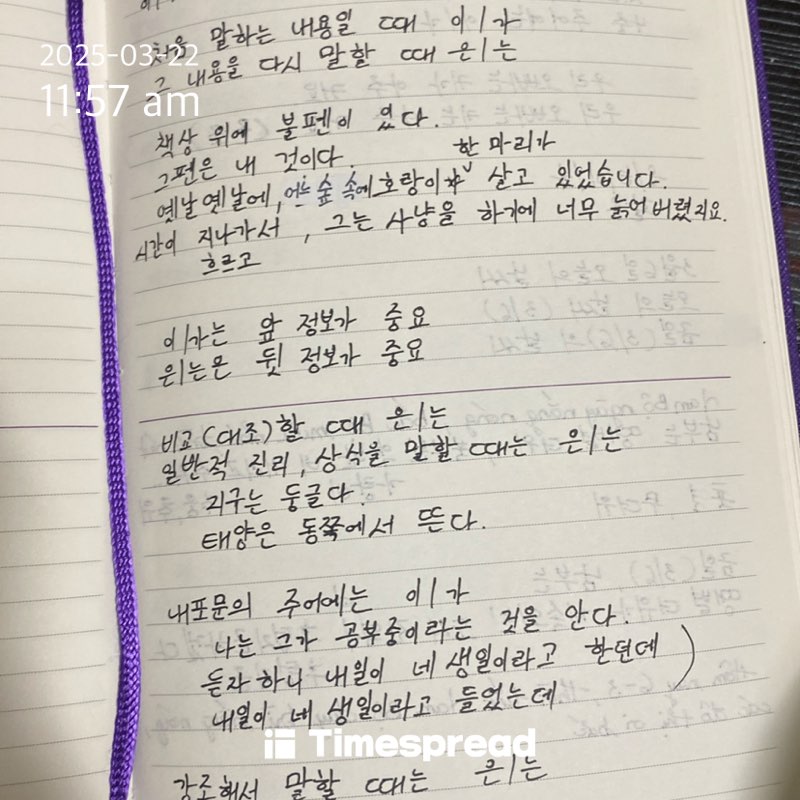 2025-03-22
11:57 am
처음 말하는 내용일 때 이/가
그 내용을 다시 말할 때 은/는
책상 위에 볼펜이 있다.
그펜은 내 것이다.
한 마리가
옛날옛날에, 어느 숲 속에 호랑이 살고 있었습니다.
시간이 지나가서, 그는 사냥을 하기에 너무 늙어버렸지요.
흐르고
이/가는 앞 정보가 중요
은/는은 뒷 정보가 중요
비교(대조)할 때 은/는
일반적 진리, 상식을 말할 때는 은/는
지구는 둥글다.
태양은 동쪽에서 뜬다.
내포문의 주어에는 이/가
나는 그가 공부중이라는 것을 안다.
듣자하니 내일이 네 생일이라고 한던데
내일이 네 생일이라고 들었는데
강조해서 말할 때는 은/는
Timespread